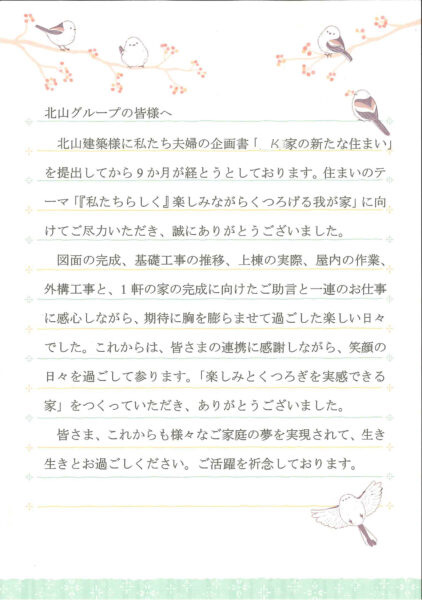 北山グループの皆様へ
北山建築様に私たち夫婦の企画書「 K家の新たな住まい」
を提出してから9か月が経とうとしております。住まいのテ
ーマ「『私たちらしく』楽しみながらくつろげる我が家」に向
けてご尽力いただき、誠にありがとうございました。
図面の完成、基礎工事の推移、上棟の実際、屋内の作業、
外構工事と、1軒の家の完成に向けたご助言と一連のお仕事
に感心しながら、期待に胸を膨らませて過ごした楽しい日々
でした。これからは、皆さまの連携に感謝しながら、笑顔の
日々を過ごして参ります。「楽しみとくつろぎを実感できる
家」をつくっていただき、ありがとうございました。
皆さま、これからも様々なご家庭の夢を実現されて、生き
生きとお過ごしください。ご活躍を祈念しております。